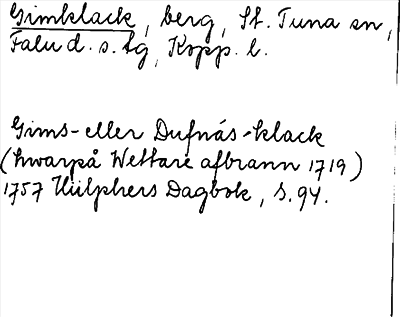 Gimklack, berg, St. Tuna sn,
Falu d. s. tg, Kopp. l.
Gims- eller Dufnäs-klack
(hwarpå Wettare afbrann 1719)
1757 Hülphers Dagbok, s. 94.